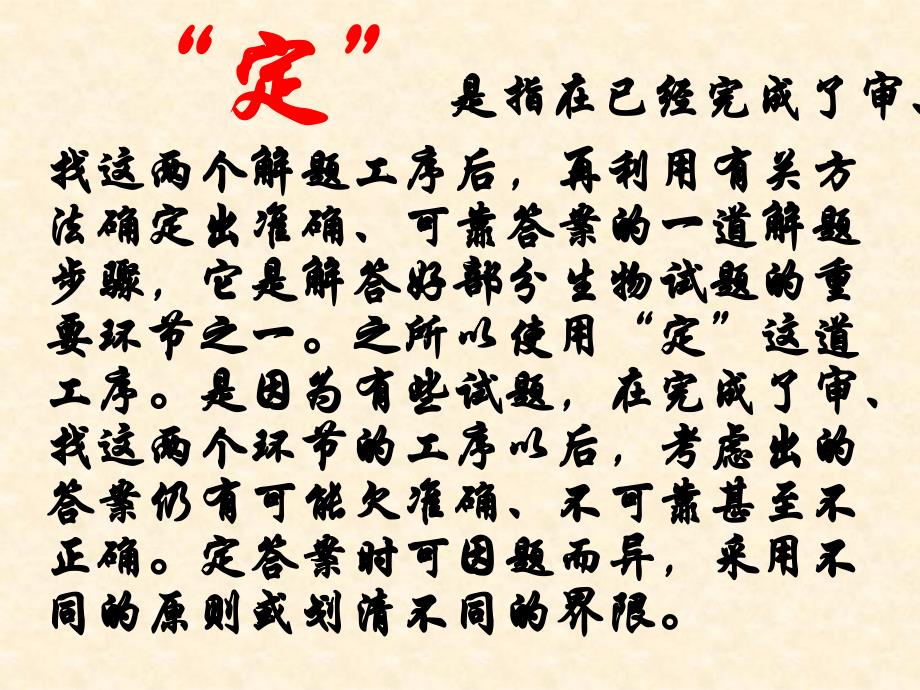 “定”是指在已经完成了审、
找这两个解题工序后，再利用有关方
法确定出准确、可靠答案的一道解题
步骤，它是解答好部分生物试题的重
要环节之一。之所以使用“定”这道
工序。是因为有些试题，在完成了审、
找这两个环节的工序以后，考虑出的
答案仍有可能欠准确、不可靠甚至不
正确。定答案时可因题而异，采用不
同的原则或划清不同的界限。